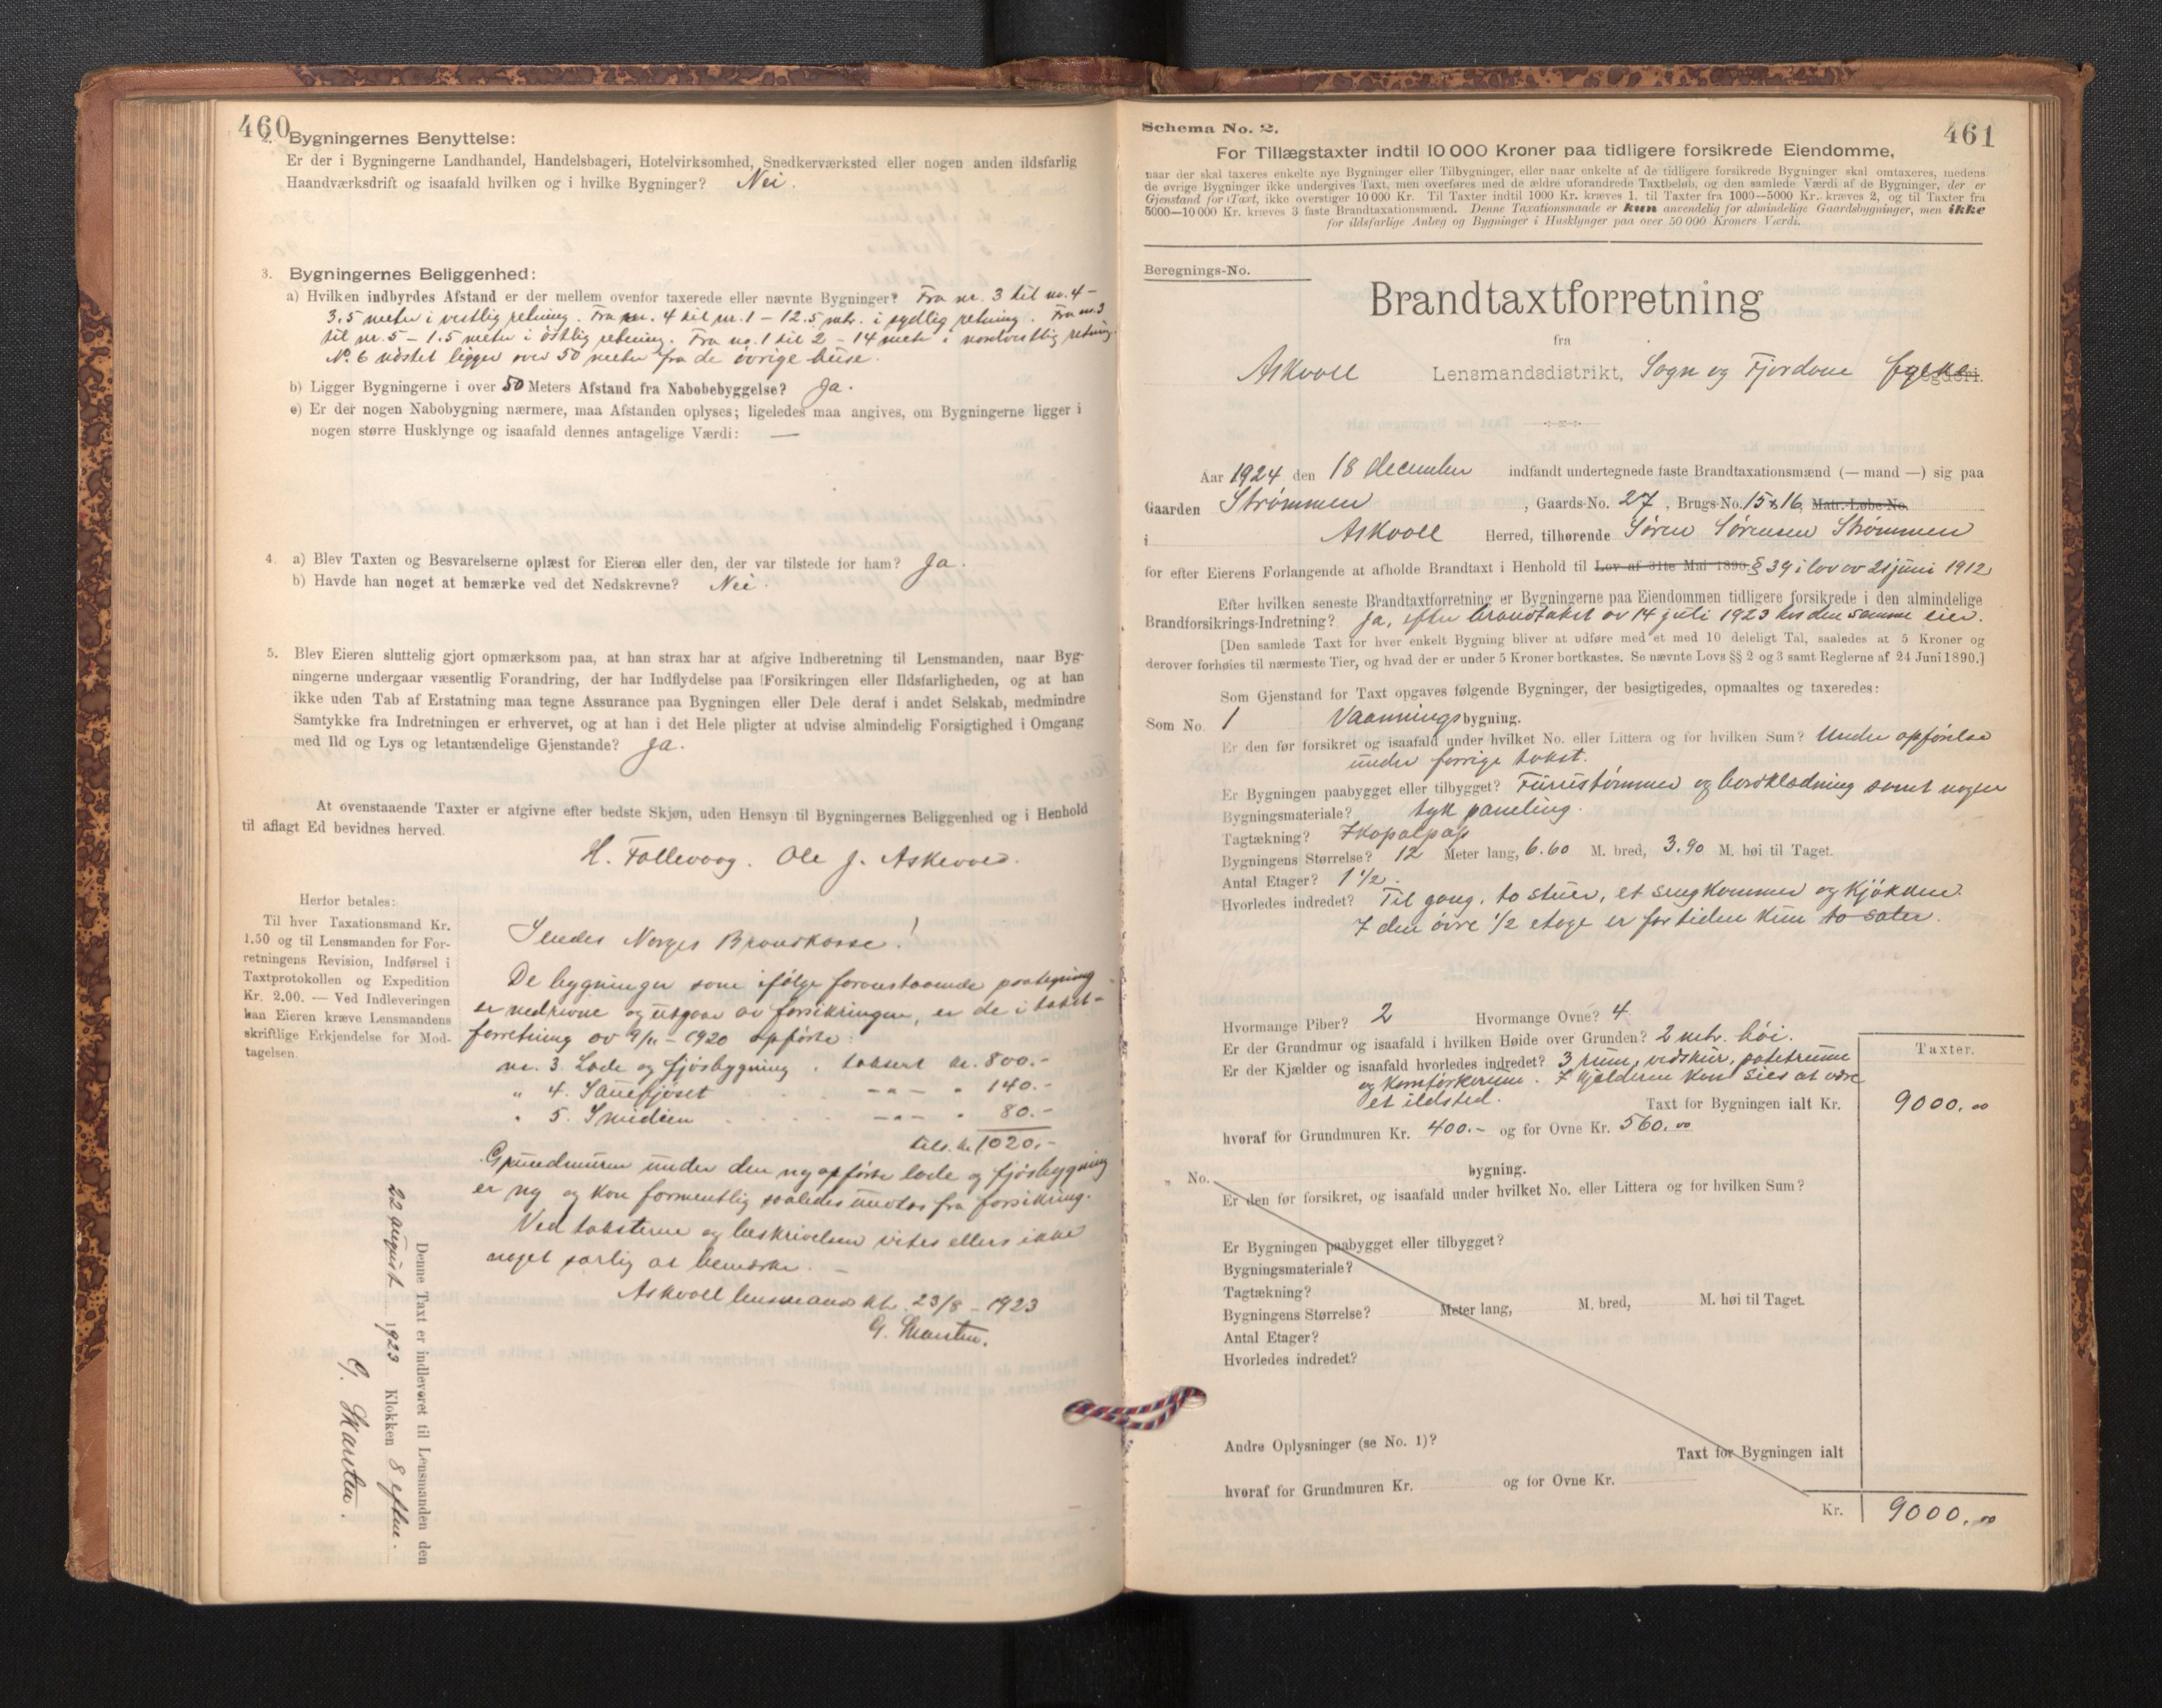 460
2. Bygningernes Benyttelse:
Er der i Bygningerne Landhandel, Handelsbageri, Hotelvirksomhed, Snedkerværksted eller nogen anden ildsfarlig
Haandværksdrift og isaafald hvilken og i hvilke Bygninger? Nei.
3. Bygningernes Beliggenhed:
a) Hvilken indbyrdes Afstand er der mellem ovenfor taxerede eller nævnte Bygninger? Fra nr. 3 til no. 4 –
3.5 meter i vestlig retning. Fra nr. 4 til nr. 1 – 12.5 mtr. i sydlig retning. Fra nr. 3
til nr. 5 – 1.5 meter i østlig retning. Fra no. 1 til 2 – 14 meter i nordvestlig retning.
No. 6 nøstet ligger over 50 meter fra de øvrige huse.
b) Ligger Bygningerne i over 50 Meters Afstand fra Nabobebyggelse? Ja.
c) Er der nogen Nabobygning nærmere, maa Afstanden oplyses; ligeledes maa angives, om Bygningerne ligger i
nogen større Husklynge og isaafald dennes antagelige Værdi: —
4. a) Blev Taxten og Besvarelserne oplæst for Eieren eller den, der var tilstede for ham? Ja.
b) Havde han noget at bemærke ved det Nedskrevne? Nei.
5. Blev Eieren sluttelig gjort opmærksom paa, at han strax har at afgive Indberetning til Lensmanden, naar Byg-
ningerne undergaar væsentlig Forandring, der har Indflydelse paa Forsikringen eller Ildsfarligheden, og at han
ikke uden Tab af Erstatning maa tegne Assurance paa Bygningen eller Dele deraf i andet Selskab, medmindre
Samtykke fra Indretningen er erhvervet, og at han i det Hele pligter at udvise almindelig Forsigtighed i Omgang
med Ild og Lys og letantændelige Gjenstande? Ja.
At ovenstaaende Taxter er afgivne efter bedste Skjøn, uden Hensyn til Bygningernes Beliggenhed og i Henhold
til aflagt Ed bevidnes herved.
H. Follevaag. Ole J. Askevold.
Herfor betales:
Til hver Taxationsmand Kr.
1.50 og til Lensmanden for For-
retningens Revision, Indførsel i
Taxtprotokollen og Expedition
Kr. 2.00. — Ved Indleveringen
kan Eieren kræve Lensmandens
skriftlige Erkjendelse for Mod-
tagelsen.
Sendes Norges Brandkasse!
De bygninger som ifølge foranstaaende paategning
er nedrevne og utgaar av forsikringen, er de i takst-
forretning av 9/11 – 1920 opførte:
nr. 3. Lade og fjøsbygning, takseret kr. 800.-
" 4. Sauefjøset — " — " 140.-
" 5. Smidien — " — " 80.-
tils. kr. 1020.-
Grundmuren under den nyopførte lade og fjøsbygning
er ny og kan formentlig saaledes undtas fra forsikring.
Ved taksterne og beskrivelsen vites ellers ikke
noget særlig at bemerke. –
Askvoll lensmands ktr. 23/8 – 1923
G. Skarsten.
Denne Taxt er indleveret til Lensmanden den
22 august 1923 Klokken 8 efterm.
G. Skarsten.
461
Schema No. 2.
For Tillægstaxter indtil 10 000 Kroner paa tidligere forsikrede Eiendomme,
naar der skal taxeres enkelte nye Bygninger eller Tilbygninger, eller naar enkelte af de tidligere forsikrede Bygninger skal omtaxeres, medens
de øvrige Bygninger ikke undergives Taxt, men overføres med de ældre uforandrede Taxtbeløb, og den samlede Værdi af de Bygninger, der er
Gjenstand for Taxt, ikke overstiger 10 000 Kr. Til Taxter indtil 1000 Kr. kræves 1, til Taxter fra 1000—5000 Kr. kræves 2, og til Taxter fra
5000—10 000 Kr. kræves 3 faste Brandtaxationsmænd. Denne Taxationsmaade er kun anvendelig for almindelige Gaardsbygninger, men ikke
for ildsfarlige Anlæg og Bygninger i Husklynger paa over 50 000 Kroners Værdi.
Beregnings-No.
Brandtaxtforretning
fra
Askvoll Lensmandsdistrikt, Sogn og Fjordane fylke Fogderi.
Aar 1924 den 18 december indfandt undertegnede faste Brandtaxationsmænd (— mand —) sig paa
Gaarden Strømmen, Gaards-No. 27, Brugs-No. 15 & 16, Matr.-Løbe-No.
i Askvoll Herred, tilhørende Søren Sørensen Strømmen
for efter Eierens Forlangende at afholde Brandtaxt i Henhold til Lov af 31te Mai 1890 § 39 i lov av 21 juni 1912
Efter hvilken seneste Brandtaxtforretning er Bygningerne paa Eiendommen tidligere forsikrede i den almindelige
Brandforsikrings-Indretning? Ja, efter brandtakst av 14 juli 1923 hos den samme eier.
[Den samlede Taxt for hver enkelt Bygning bliver at udføre med et med 10 deleligt Tal, saaledes at 5 Kroner og
derover forhøies til nærmeste Tier, og hvad der er under 5 Kroner bortkastes. Se nævnte Lovs §§ 2 og 3 samt Reglerne af 24 Juni 1890.]
Som Gjenstand for Taxt opgaves følgende Bygninger, der besigtigedes, opmaaltes og taxeredes:
Som No. 1 Vaaningsbygning.
Er den før forsikret og isaafald under hvilket No. eller Littera og for hvilken Sum? Under opførelse
under forrige takst.
Er Bygningen paabygget eller tilbygget? Furustømmer og bordklædning samt nogen
Bygningsmateriale? tyk paneling.
Tagtækning? Ikopalpap
Bygningens Størrelse? 12 Meter lang, 6.60 M. bred, 3.90 M. høi til Taget.
Antal Etager? 1 1/2.
Hvorledes indredet? Til gang, to stuer, et sengkammer og kjøkken.
I den øvre 1/2 etage er for tiden kun to saler.
Hvormange Piber? 2 Hvormange Ovne? 4
Er der Grundmur og isaafald i hvilken Høide over Grunden? 2 mtr. høi.
Er der Kjælder og isaafald hvorledes indredet? 3 rum, vedskur, potetrum
og komførkerum. I kjelderen kan sies at være
et ildsted.
Taxter.
Taxt for Bygningen ialt Kr. 9000.00
hvoraf for Grundmuren Kr. 400.- og for Ovne Kr. 560.00
„ No. bygning.
Er den før forsikret, og isaafald under hvilket No. eller Littera og for hvilken Sum?
Er Bygningen paabygget eller tilbygget?
Bygningsmateriale?
Tagtækning?
Bygningens Størrelse? Meter lang, M. bred, M. høi til Taget.
Antal Etager?
Hvorledes indredet?
Andre Oplysninger (se No. 1)?
Taxt for Bygningen ialt
hvoraf for Grundmuren Kr. og for Ovne Kr.
Kr. 9000.00